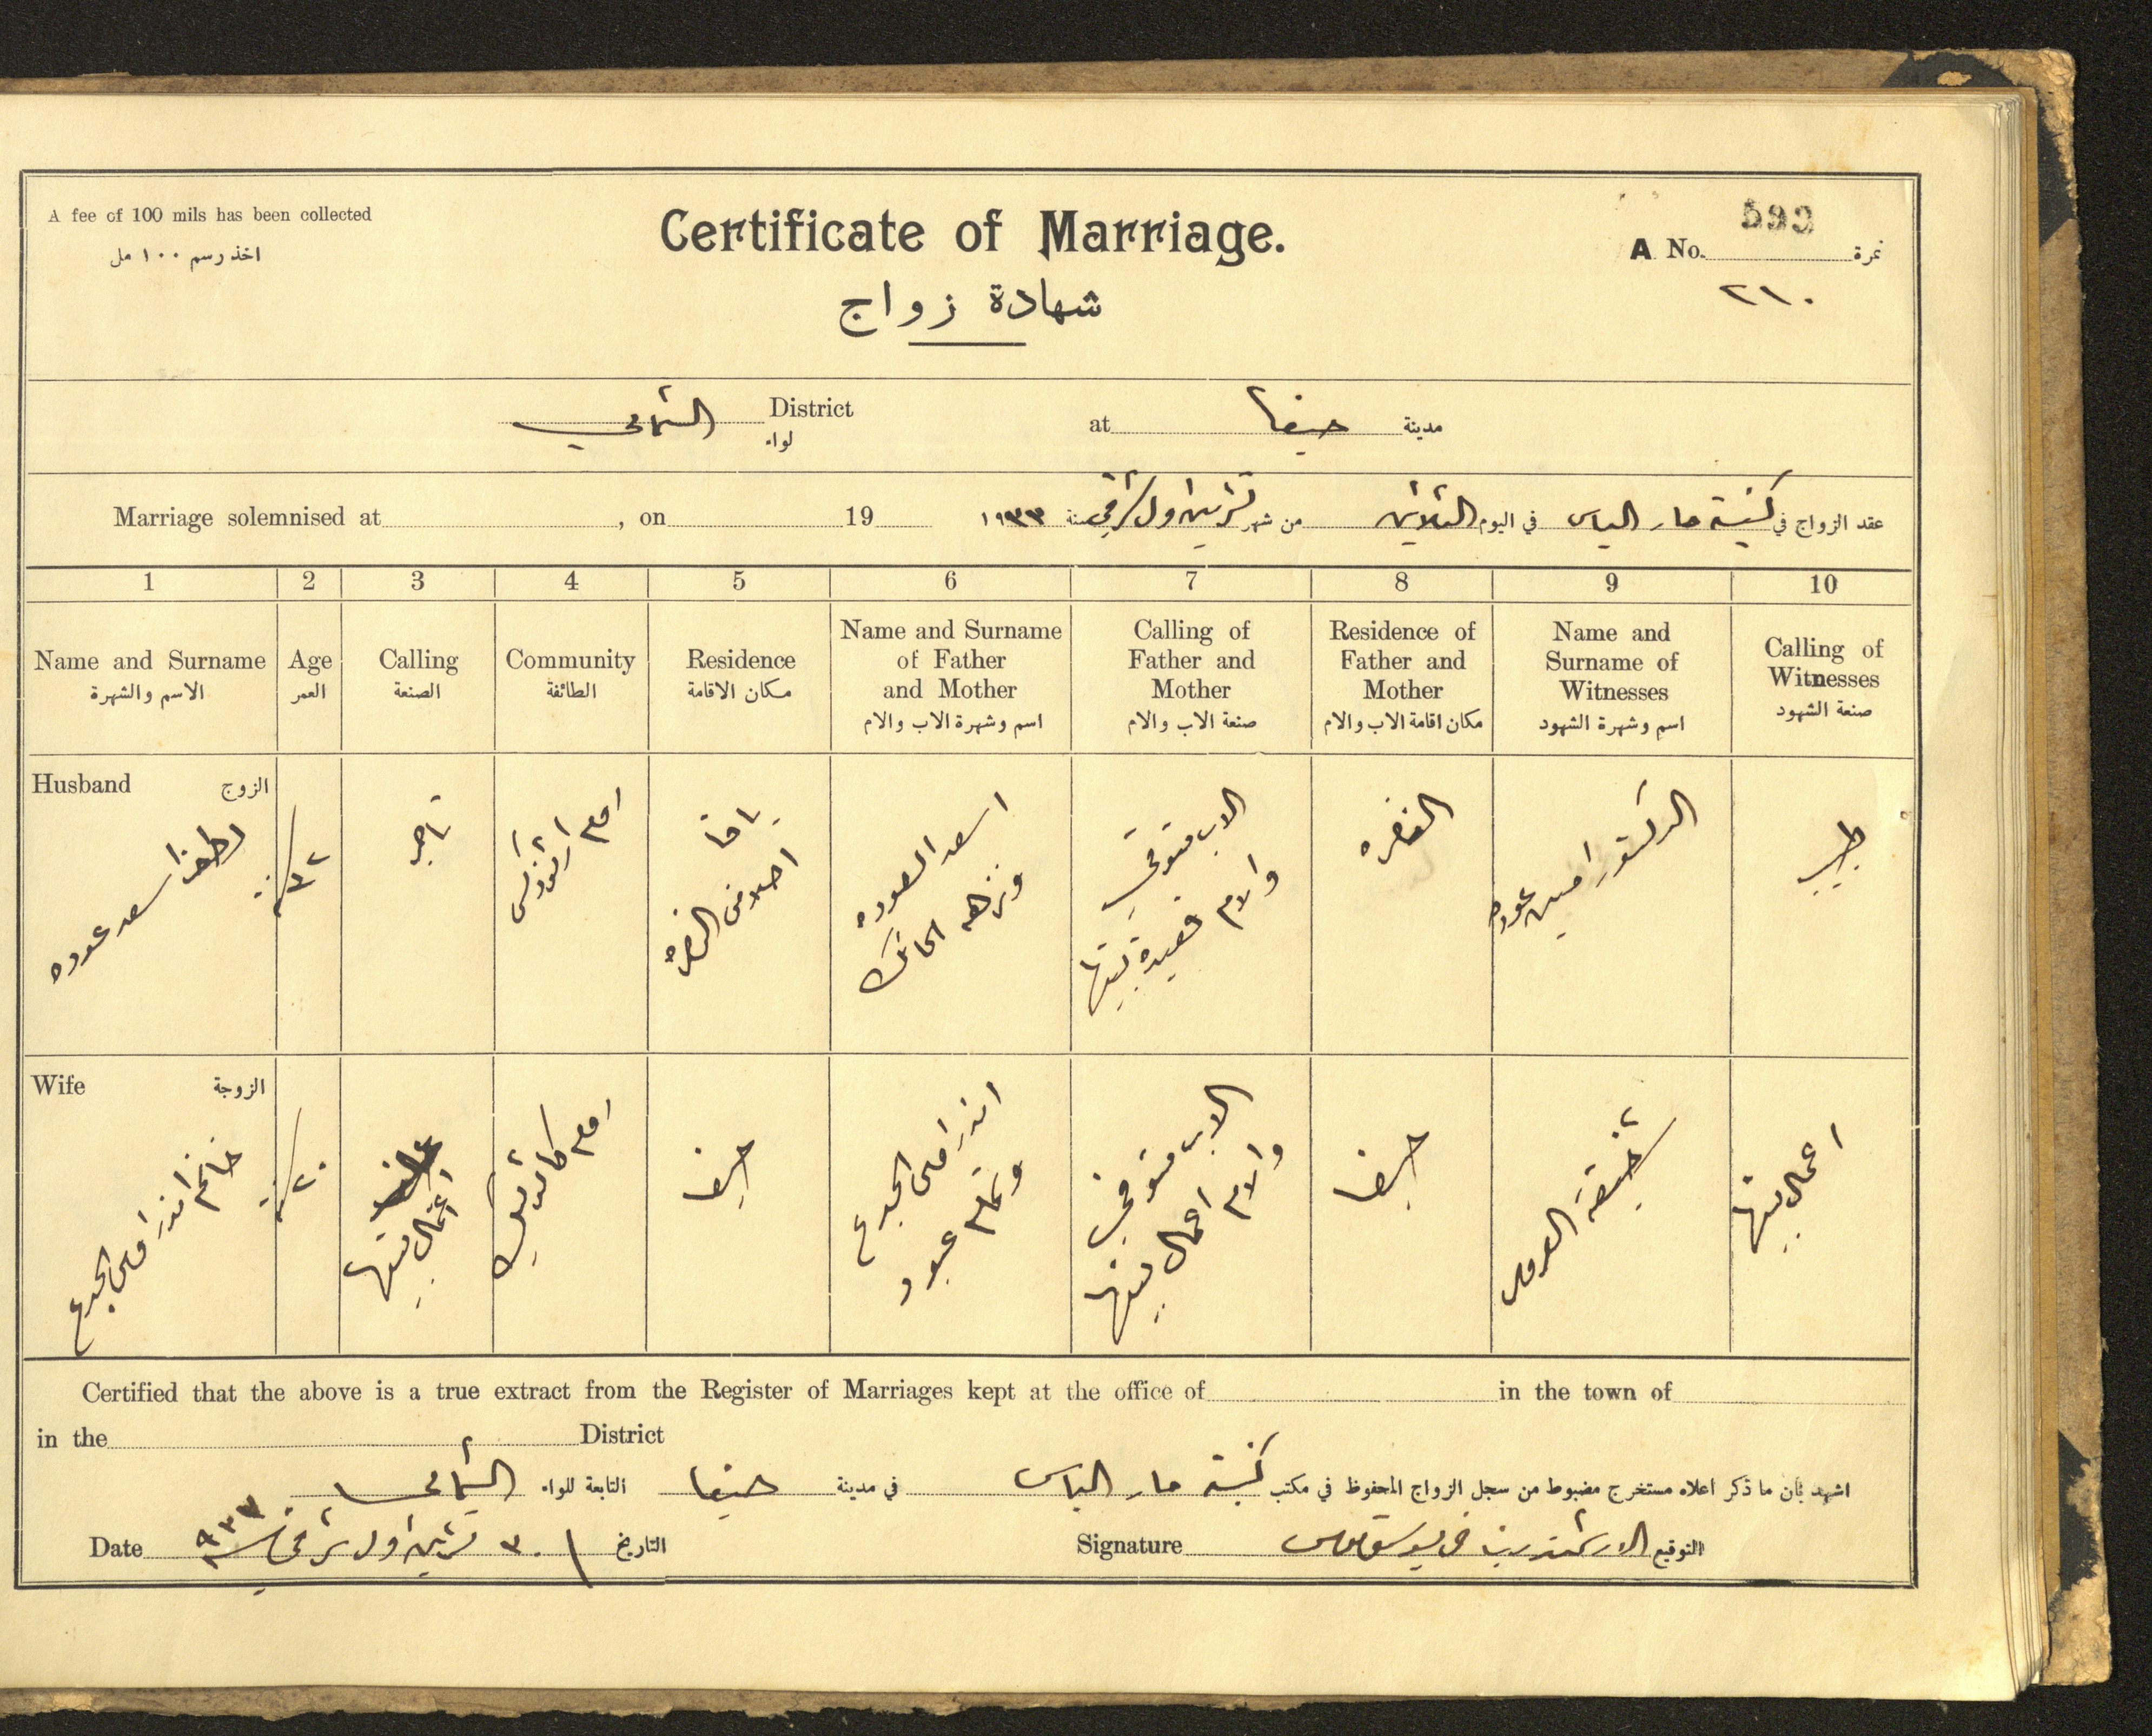 A fee of 100 mils has been collected
اخذ رسم ١٠٠ مل
Certificate of Marriage.
شهادة زواج
593
A No. نمرة
٢١٠
District الشمالي
لواء
at حيفا مدينة
Marriage solemnised at , on 19
عقد الزواج في كنيسة مار الياس في اليوم الثلاثين من شهر تشرين اول شرقي سنة ١٩٣٣
1 2 3 4 5 6 7 8 9 10
Name and Surname
الاسم والشهرة
Age
العمر
Calling
الصنعة
Community
الطائفة
Residence
مكان الاقامة
Name and Surname
of Father
and Mother
اسم وشهرة الاب والام
Calling of
Father and
Mother
صنعة الاب والام
Residence of
Father and
Mother
مكان اقامة الاب والام
Name and
Surname of
Witnesses
اسم وشهرة الشهود
Calling of
Witnesses
صنعة الشهود
Husband الزوج
اسعد عوده
٣٢ سنة
تاجر
روم ارثوذكس
يافا
اصلا من الناصره
اسعد العوده
ونزهه الحائك
الاب متوفي
والام قعيدة بيتها
الناصره
الدكتور امين عوده
طبيب
Wife الزوجة
خانم اندراوس الجدع
٢٠ سنة
اعمال بيتها
روم كاثوليك
حيفا
اندراوس الجدع
عبود
الاب متوفي
والام اعمال بيتها
حيفا
اعمال بيتها
Certified that the above is a true extract from the Register of Marriages kept at the office of in the town of
in the District
اشهد بأن ما ذكر اعلاه مستخرج مضبوط من سجل الزواج المحفوظ في مكتب كنيسة مار الياس في مدينة حيفا التابعة للواء الشمالي
Date ٣٠ تشرين اول شرقي سنة ٩٣٣ التاريخ
Signature الارشمندريت التوقيع